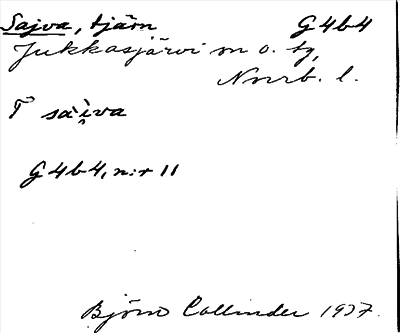 Sajva, tjärn G4b4
Jukkasjärvi sn o. tg,
Norrb. l.
sài̯va
G4b4, n:r 11
Björn Collinder 1937.